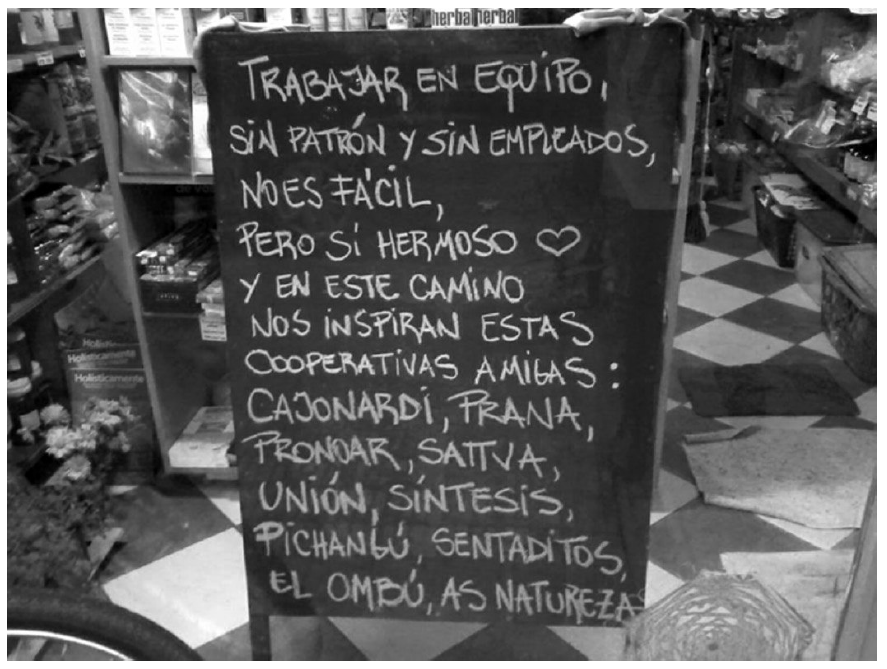 herbal herbal
TRABAJAR EN EQUIPO,
SIN PATRÓN Y SIN EMPLEADOS,
NO ES FÁCIL,
PERO SÍ HERMOSO ♡
Y EN ESTE CAMINO
NOS INSPIRAN ESTAS
COOPERATIVAS AMIGAS:
CAJONARDI, PRANA,
PRONOAR, SATTVA,
UNIÓN, SÍNTESIS,
PICHANGÚ, SENTADITOS,
EL OMBÚ, AS NATUREZAS
Holísticamente
Holísticamente